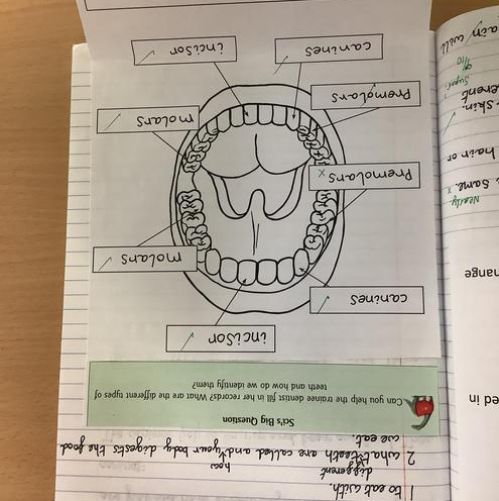 1 to eat with.
different how
2 what teeth are called and your body digests the food
we eat.
Sci's Big Question
Can you help the trainee dentist fill in her records? What are the different types of
teeth and how do we identify them?
incisor
canines
molars
Premolars
molars
Premolars
canines
incisor
ed in
hange
Nearly
same
hair or
skin.
erent
Super
9/10
will